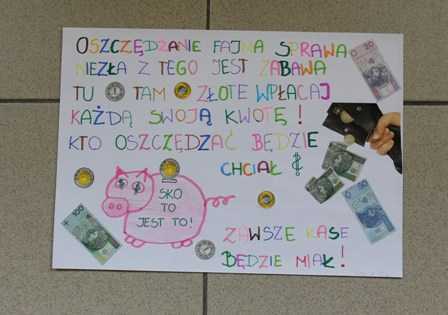 OSZCZĘDZANIE FAJNA SPRAWA
NIEZŁA Z TEGO JEST ZABAWA
TU TAM ZŁOTE WPŁACAJ
KAŻDĄ SWOJĄ KWOTĘ!
KTO OSZCZĘDZAĆ BĘDZIE
CHCIAŁ $
SKO
TO
JEST TO!
ZAWSZE KASĘ
BĘDZIE MIAŁ!
20
100